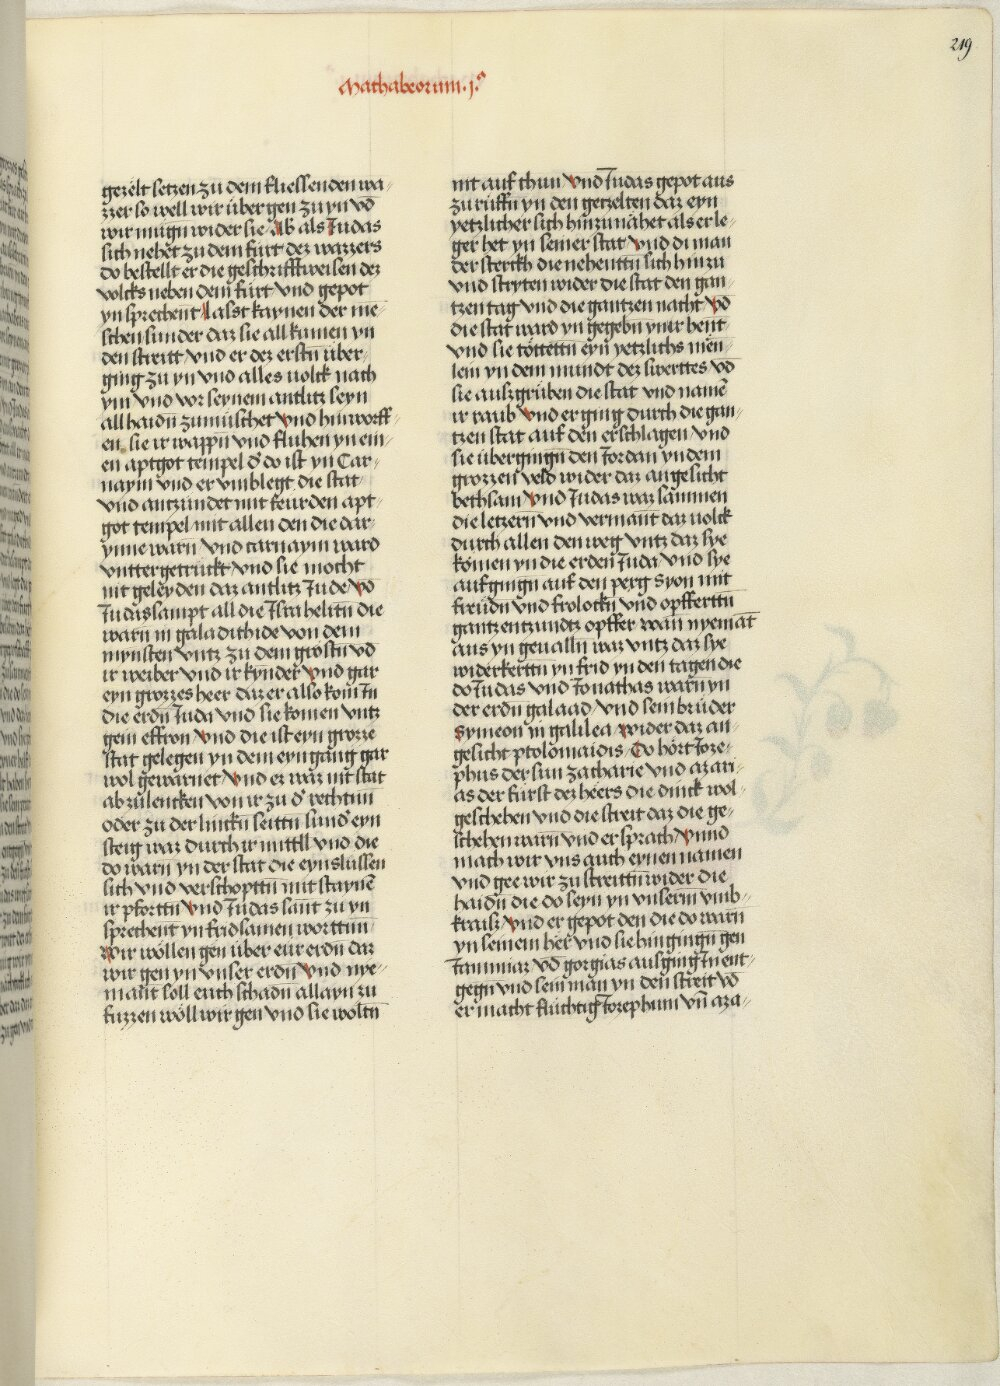 219
Machabeorum .j.ᵃ
gezelt setzen zu dem fliessenden wa⸗
zzer so well wir über gen zu yn vō
wir mügn wider sie / Ab als Judas
sich nehet zu dem furt dez wazzers
do bestellt er die geschrifftweisen dez
volcks neben dem furt vnd gepot
yn sprechent lasst kaynen der me⸗
schen sunder daz sie all kumen yn
den streitt / vnd er dez erstn über⸗
ging zu yn vnd alles uolck nach
ym vnd vor seynem antlitz seyn
all haidn zumüschet vnd hinworff⸗
en sie ir wappn vnd fluhen yn ein⸗
en aptgot tempel d' do ist yn Car⸗
naym vnd er vmblegt die stat
vnd antzundet mit feurden apt⸗
got tempel mit allen den die dar⸗
ynne warn vnd carnaym ward
vnttergetruckt vnd sie mocht
nit geleyden daz antlitz Jude vō
Judas sampt all die Israhelitn die
warn in galadithide von dem
mynsten vntz zu dem grostn vō
ir weiber vnd ir kynder vnd gar
eyn grozzes heer daz er also kom In
die erdn Juda vnd sie komen vntz
gem effron vnd die ist eyn grozze
stat gelegen yn dem eyngang gar
wol gewarnet vnd ez waz nit stat
abzulencken von ir zu d' rechtnn
oder zu der linckn seittn sund' eyn
steig waz durch ir mittll vnd die
do warn yn der stat die eynslussen
sich vnd verschopttn mit staynē
ir pforttn vnd Judas sant zu yn
sprechent yn fridsamen worttnn
Wir wöllen gen über eur erdn daz
wir gen yn vnser erdn vnd nye⸗
mant soll euch schadn allayn zu
fuzzen wöll wir gen vnd sie woltn
nit auf thun vnd Judas gepot aus
zu ruffn yn den gerzelten daz eyn
yetzlicher sich hinzu nahet als er le⸗
ger het yn seiner stat vnd di man
der sterckh die nehenttn sich hinzu
vnd stryten wider die stat den gan⸗
tzen tag vnd die gantzen nacht vō
die stat ward yn gegebn yner hent
vnd sie töttettn eyn yetzlichs men⸗
lein yn dem mundt dez swerttes vō
sie auszgrüben die stat vnd namē
ir raub vnd er ging durch die gan⸗
tzen stat auf den erschlagen vnd
sie übergingn den Jordan yn dem
grozzen veld wider daz angesicht
bethsam vnd Judas waz sammen
die letzern vnd vermant daz uolck
durch allen den weg vntz daz sye
komen yn die erden Juda vnd sye
aufgingn auf den perg Syon mit
freudn vnd frolockn vnd opfferttn
gantzentzundtz opffer wan nyemāt
aus yn geualln waz vntz daz sye
widerkerttn yn frid yn den tagen die
do Judas vnd Jonathas warn yn
der erdn galaad vnd sein brüder
Symeon in galilea wider daz an⸗
gesicht ptolomaidis / Do hört Joze⸗
phus der sun zacharie vnd azari⸗
as der furst dez heers die dinck wol⸗
geschehen vnd die streit daz die ge⸗
schehen warn vnd er sprach / vnnd
mach wir vns auch eynen namen
vnd gee wir zu streittn wider die
haidn die do seyn yn vnserm vmb⸗
kraisz vnd er gepot den die do warn
yn seinem her vnd sie hin gingn gen
Jamniaz vō gorgias ausging In ent⸗
gegn vnd sein man yn den streit vō
er macht fluchtig Jozephum vn̄ aza⸗